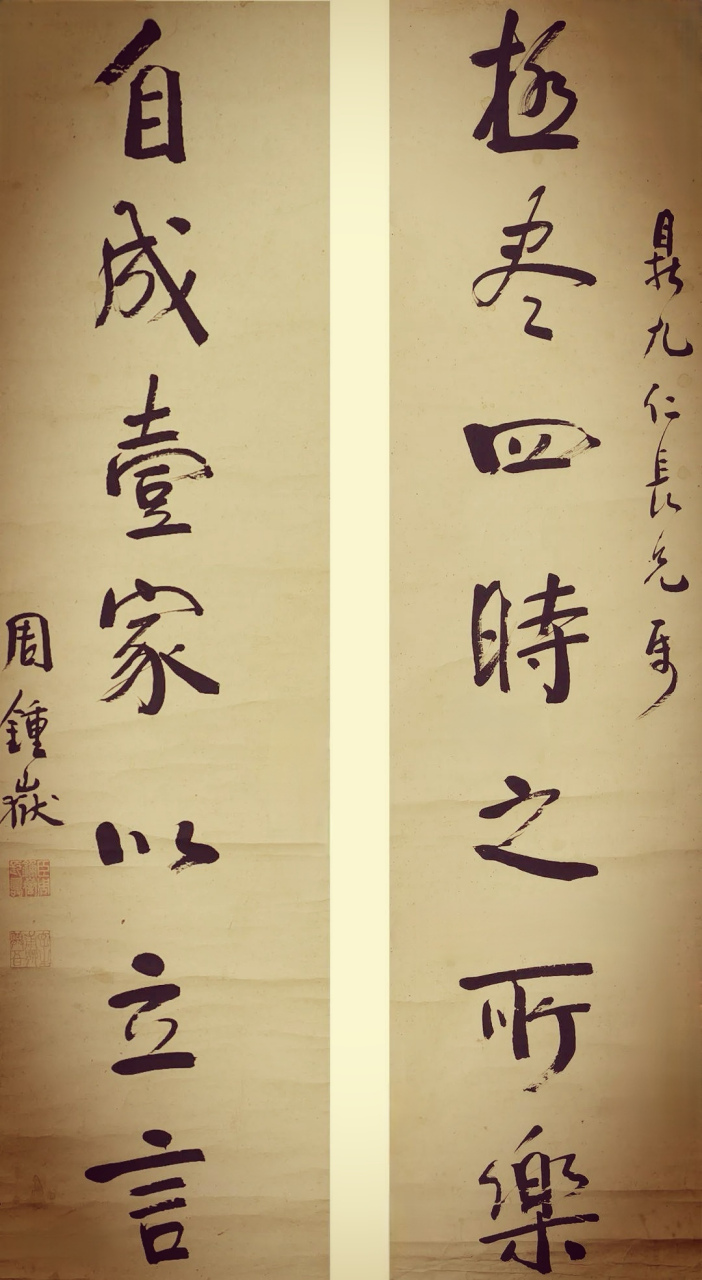 鼎九仁長兄属
極尽四時之所樂
自成壹家以立言
周鍾嶽